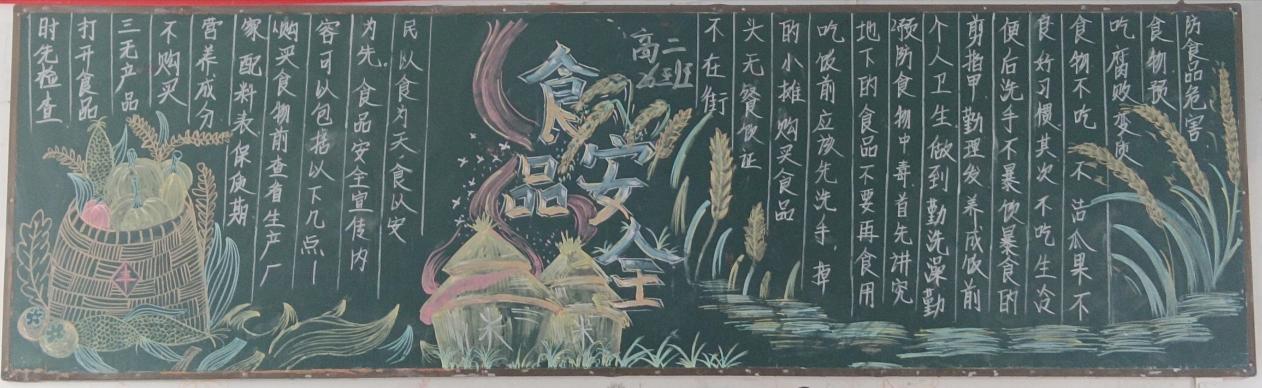 食品安全
高二
班
民以食为天,食以安
为先。食品安全宣传内
容可以包括以下几点—
购买食物前查看生产厂
家配料表保质期
营养成分
不购买
三无产品
打开食品
时先检查
不在街
头无餐饮证
的小摊购买食品
吃饭前应该先洗手 掉
地下的食品不要再食用
预防食物中毒首先讲究
个人卫生做到勤洗澡勤
剪指甲勤理发养成饭前
便后洗手不暴饮暴食的
良好习惯其次不吃生冷
食物不吃不洁瓜果不
吃腐败变质
食物预
防食品危害
米
米